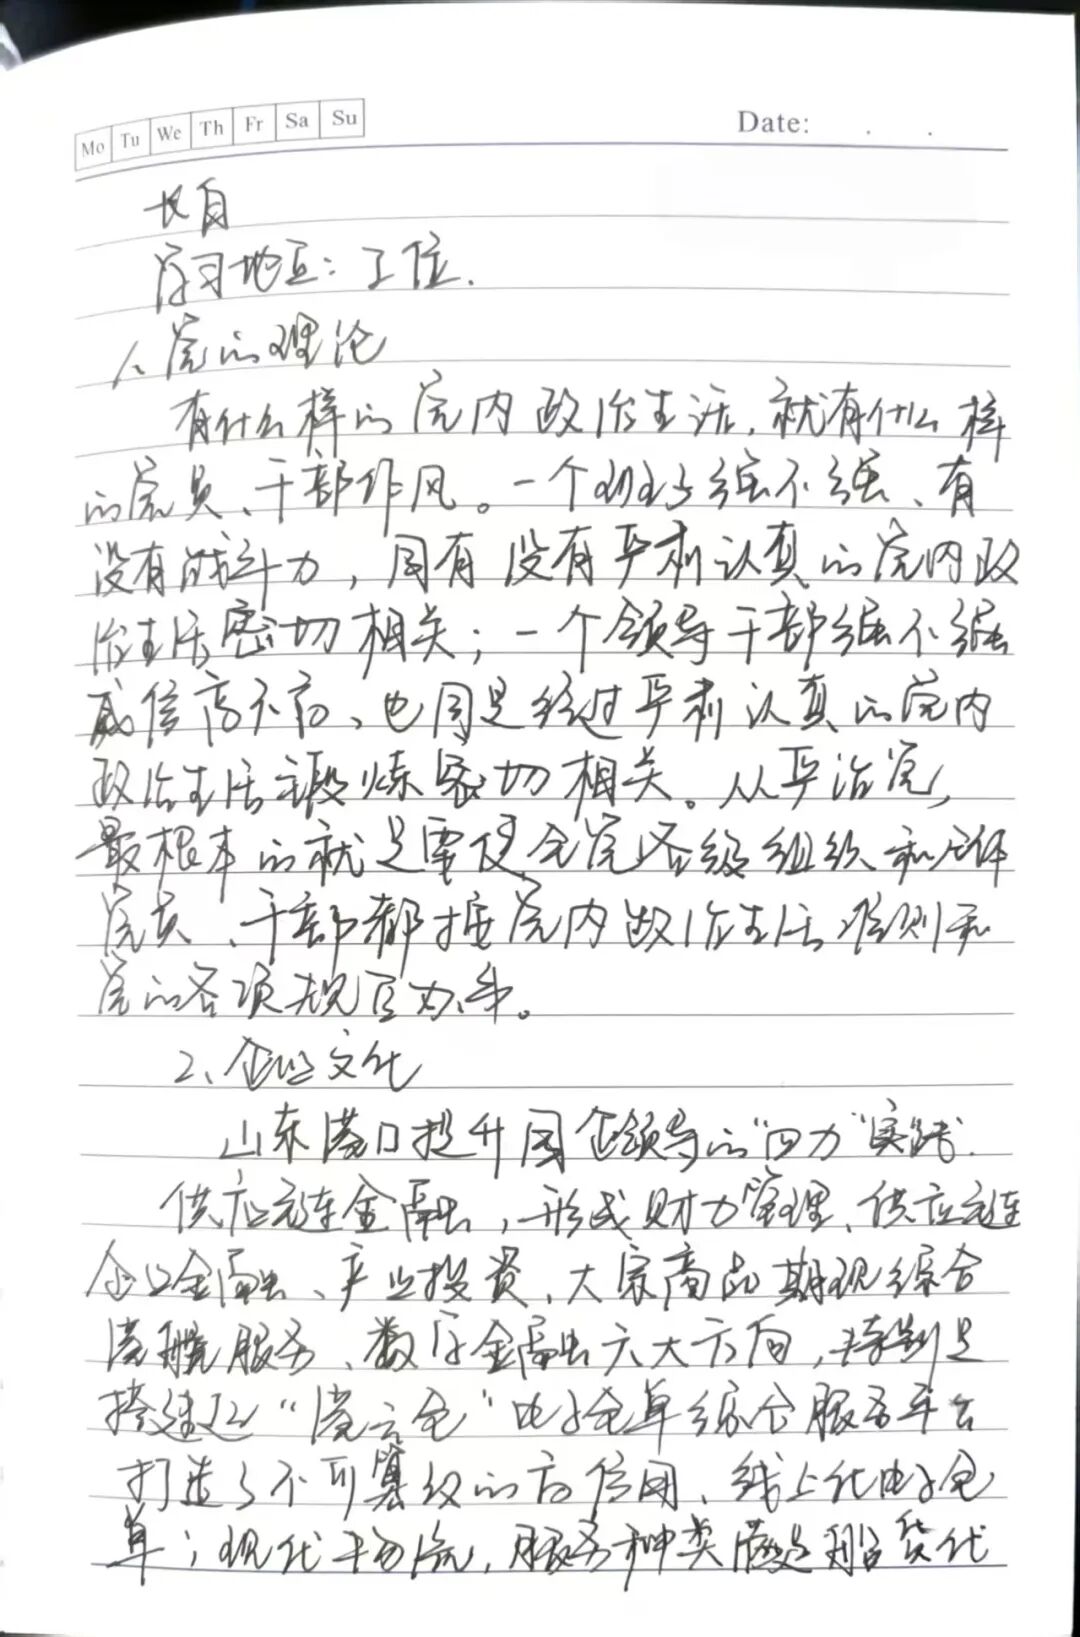 Mo Tu We Th Fr Sa Su Date: . .
自
学习地点：工位.
1、党的理论
有什么样的党内政治生活，就有什么样
的党员、干部作风。一个班子强不强、有
没有战斗力，同有没有严肃认真的党内政
治生活密切相关；一个领导干部强不强
威信高不高、也同是经过严肃认真的党内
政治生活锻炼密切相关。从严治党，
最根本的就是要使全党各级组织和全体
党员、干部都按党内政治生活准则和
党的各项规定办事。
2、企业文化
山东港口提升国企领导的“四力”实践.
供应链金融，形成财力管理、供应链
企业金融、产业投资、大宗商品期现综合
港航服务、数字金融六大方向，特别是
搭建起“港云仓”电子仓单综合服务平台
打造了不可篡改的高信用、线上化电子仓
单；现代物流，服务种类满足船货代